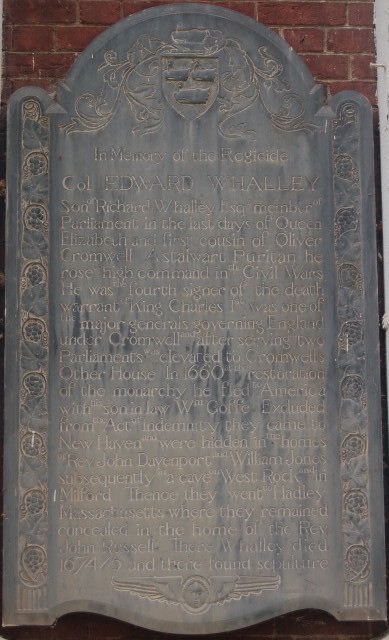 In Memory of the Regicide
Col EDWARD WHALLEY
Son of Richard Whalley Esq member of
Parliament in the last days of Queen
Elizabeth and first cousin of Oliver
Cromwell A stalwart Puritan he
rose to high command in the Civil Wars
He was the fourth signer of the death
warrant of King Charles Ist was one of
major generals governing England
under Cromwell after serving two
Parliaments was elevated to Cromwell's
Other House In 1660 restoration
of the monarchy he fled to America
with his son in law Wm Goffe Excluded
from Act of Indemnity they came to
New Haven and were hidden in the homes
of Rev John Davenport and William Jones
subsequently in a cave on West Rock and in
Milford Thence they went to Hadley
Massachusetts where they remained
concealed in the home of the Rev
John Russell There Whalley died
1674/5 and there found sepulture